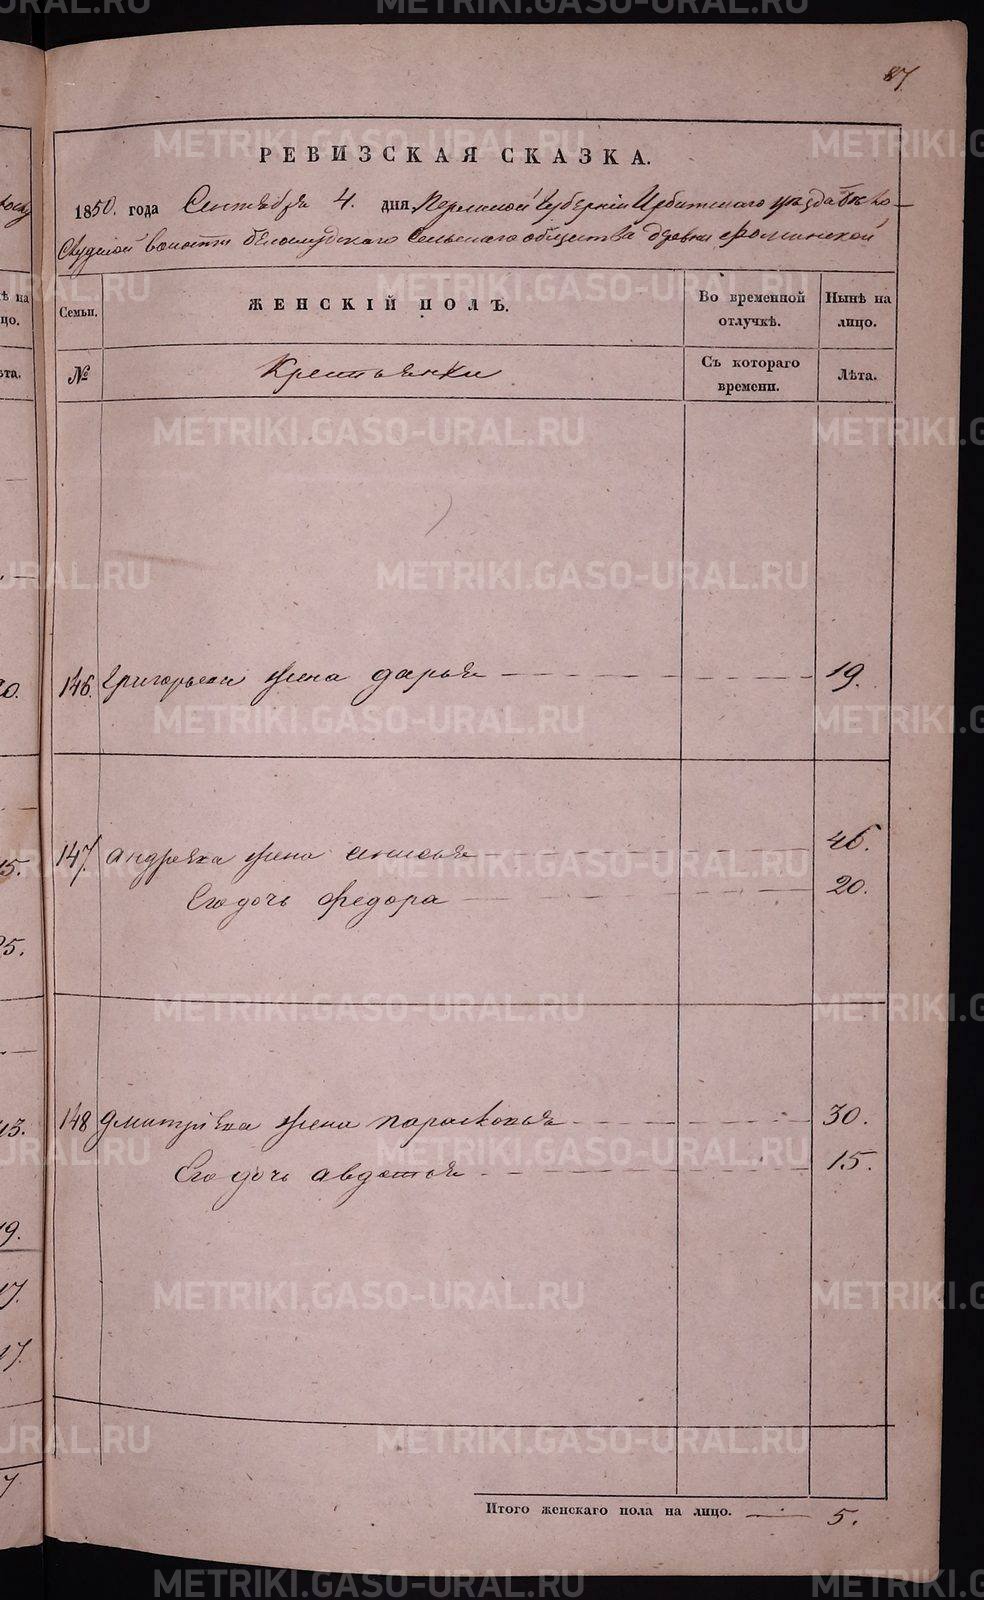 87
РЕВИЗСКАЯ СКАЗКА.
1850. года Сентября 4. дня Пермской Губерніи Ирбитскаго уѣзда Бѣло-
Слудской волости Белослудскаго Сельскаго общества деревни Фоминской
Семьи.
ЖЕНСКІЙ ПОЛЪ.
Во временной отлучкѣ.
Нынѣ на лицо.
№
Крестьянки
Съ котораго времени.
Лѣта.
146. Григорьева жена дарья 19.
147. андреява жена анисья 46.
Его дочь Федора 20.
148 дмитріява жена парасковья 30.
Его дочь авдотья 15.
Итого женскаго пола на лицо. 5.
METRIKI.GASO-URAL.RU